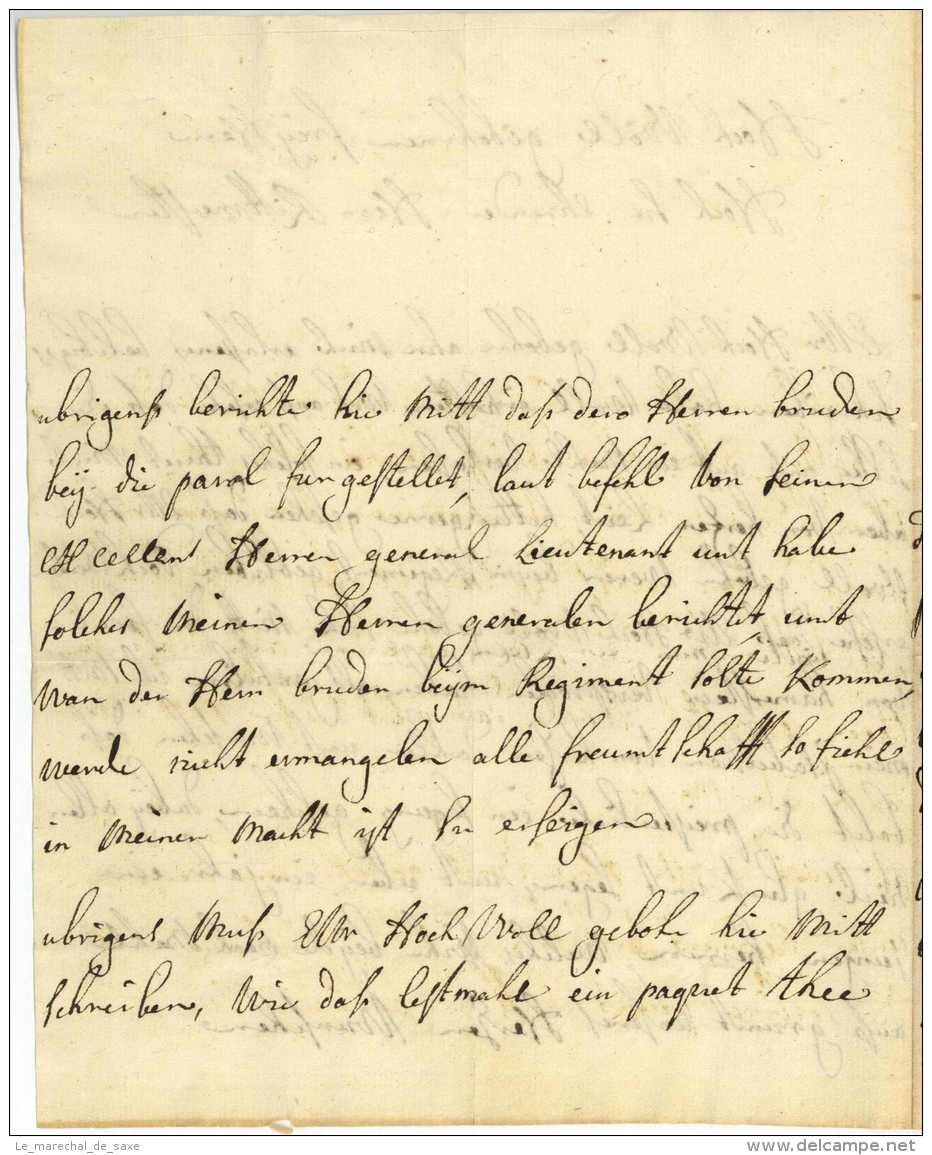 ubrigenß berichte hie Mitt daß dero Herren bruder
beÿ die parol furgestellet, laut befehl Von seiner
Herren general Lieutenant unt habe
solches Meinen Herren generalen berichtet, unt
wan der Herr bruder beÿm Regiment solte Kommen,
werde nicht ermangelen alle freuntschafft so fiehl
in Meiner Macht ist zu erzeigen
ubrigens Muß Hoch Woll geboh. hie Mitt
schreiben, Wie daß lestmahl ein paquet thee
Le_marechal_de_saxe
delcampe.net